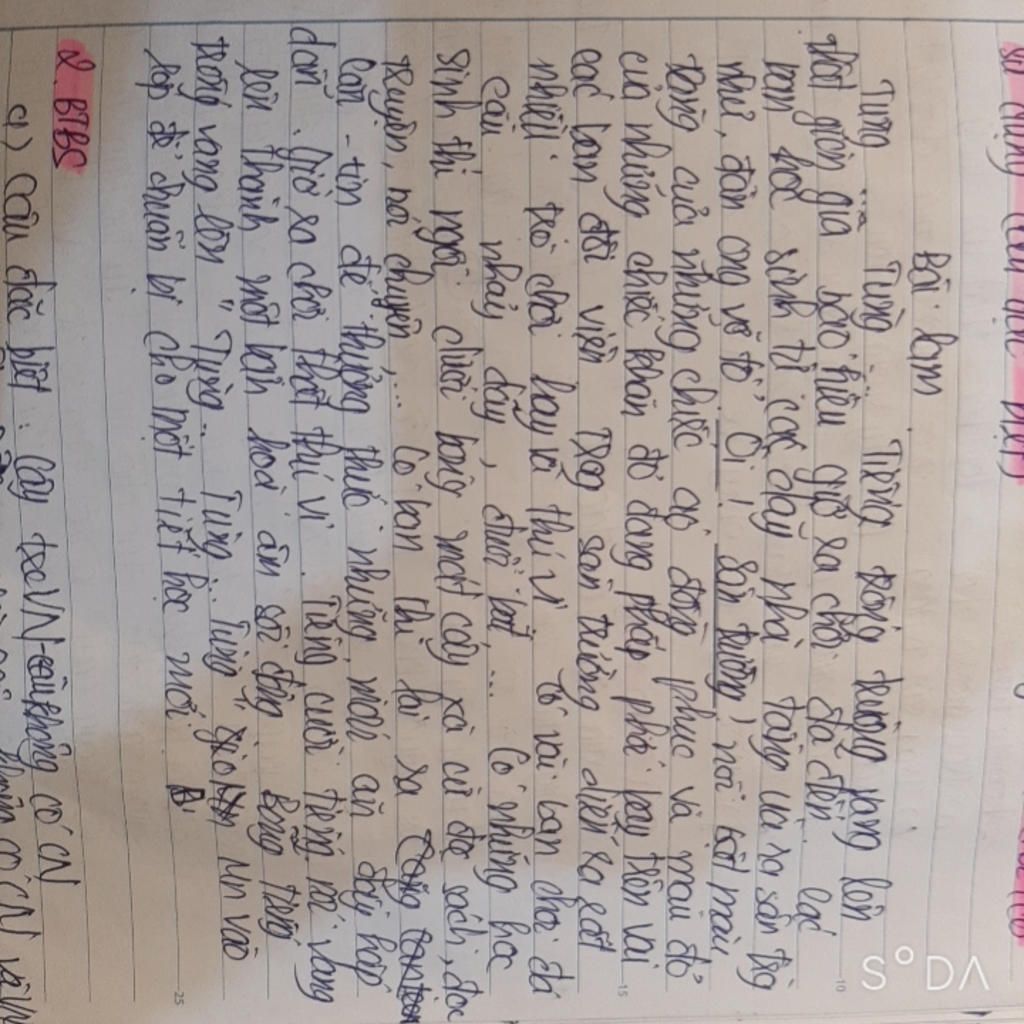 Bài làm
Tùng ... Tùng ... Tiếng trống trường vang lên
giòn giã báo hiệu giờ ra chơi đã đến. Các
bạn học sinh từ các dãy nhà tầng ùa ra sân trg
như đàn ong vỡ tổ. Ôi! Sân trường nổi bật màu
trắng của những chiếc áo đồng phục và màu đỏ
của những chiếc khăn đỏ đang phấp phới bay trên vai
các bạn đội viên. Trg sân trường diễn ra rất
nhiều trò chơi hay và thú vị. Có vài bạn chơi đá
cầu, nhảy dây, đuổi bắt ... Có những học
sinh thì ngồi dưới bóng mát cây xà cừ đọc sách, đọc
truyện, nói chuyện, ... Có bạn thì lại ra
căn-tin để thưởng thức những món ăn đầy hấp
dẫn. Giờ ra chơi thật thú vị. Tiếng cười tiếng nói vang
lên thành một bản hoà âm sôi động. Bỗng tiếng
trống vang lên "Tùng... Tùng... Tùng" mn vào
lớp để chuẩn bị cho một tiết học mới.
2. BTBS
a) Câu đặc biệt
có CN
10
15
25
S°DA